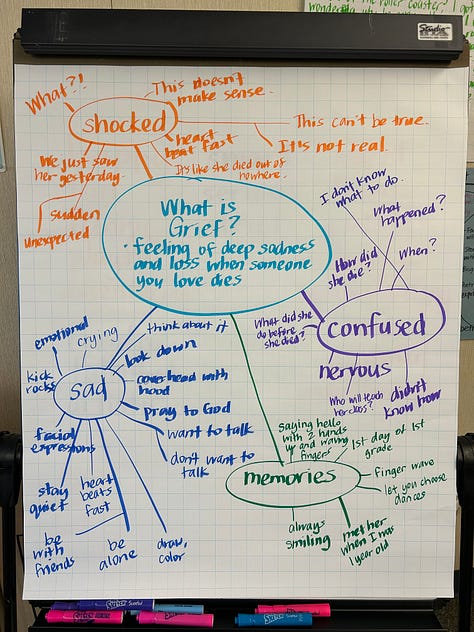 of the roller coaster. I got
Studio
What?!
This doesn't
make sense.
shocked
This can't be true.
It's not real.
heart
beat fast
It's like she died out of
nowhere.
We just saw
her yesterday
sudden
unexpected
What is
Grief?
• feeling of deep sadness
and loss when someone
you love dies
I don't know
what to do.
What
happened?
When?
How did
she die?
What did she
do before
she died?
confused
nervous
Who will teach
her class?
didn't
know how
emotional
crying
think about it
look down
kick
rocks
sad
cover head with
hood
pray to God
want to talk
don't want to
talk
facial
expressions
stay
quiet
heart
beats
fast
be
with
friends
be
alone
draw,
color
saying hello
with 2 hands
up and waving
fingers
1st day of 1st
grade
memories
finger wave
let you choose
dances
always
smiling
met her
when I was
1 year old